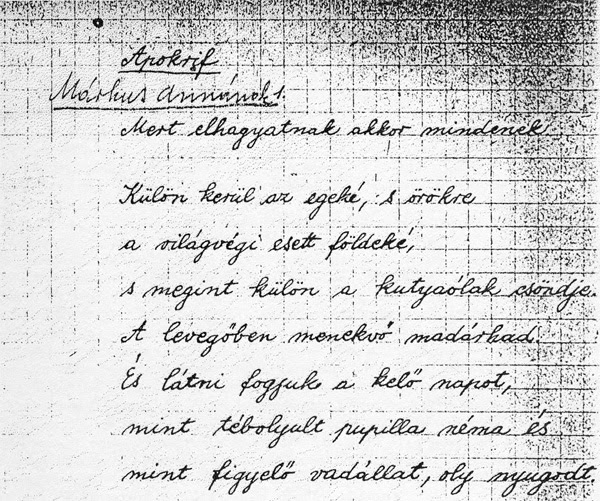 Apokrif
Márkus Annának 1.
Mert elhagyatnak akkor mindenek
Külön kerül az egeké, s örökre
a világvégi esett földeké,
s megint külön a kutyaólak csöndje.
A levegőben menekvő madárhad.
És látni fogjuk a kelő napot,
mint tébolyult pupilla néma és
mint figyelő vadállat, oly nyugodt.